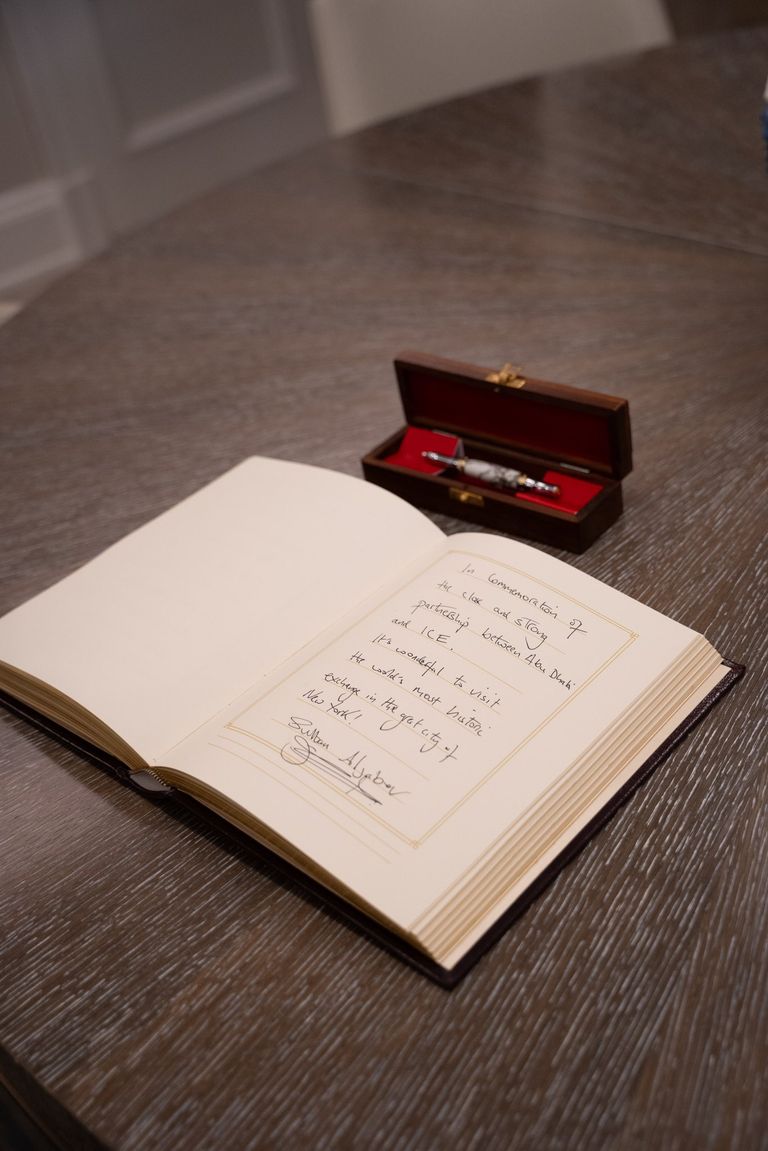 In Commemoration of
the close and strong
partnership between Abu Dhabi
and ICE.
It's wonderful to visit
the world's most historic
exchange in the great city of
New York!
Sultan Aljaber